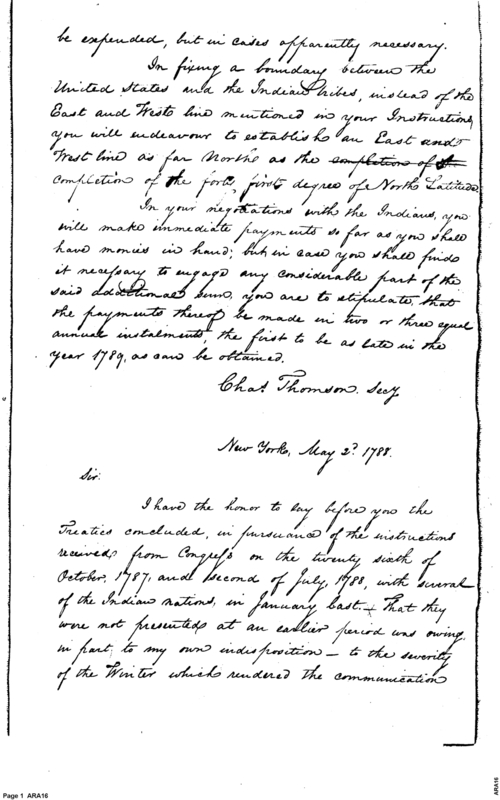 be expended, but in cases apparently necessary.
In fixing a boundary between the
United States and the Indian tribes, instead of the
East and West line mentioned in your Instructions,
you will endeavour to establish an East and
West line as far North as the completion of the
completion of the forty first degree of North Latitude.
In your negotiations with the Indians, you
will make immediate payments so far as you shall
have monies in hand; but in case you shall find
it necessary to engage any considerable part of the
said additional sum, you are to stipulate, that
the payments thereof be made in two or three equal
annual instalments, the first to be as late in the
year 1789, as can be obtained.
Chas. Thomson. Secy
New York, May 2d 1788.
Sir.
I have the honor to lay before you the
Treaties concluded, in pursuance of the instructions
received from Congress on the twenty sixth of
October, 1787, and second of July, 1788, with several
of the Indian nations, in January last — That they
were not presented at an earlier period was owing,
in part, to my own indisposition — to the severity
of the Winter which rendered the communication
Page 1 ARA16
ARA16